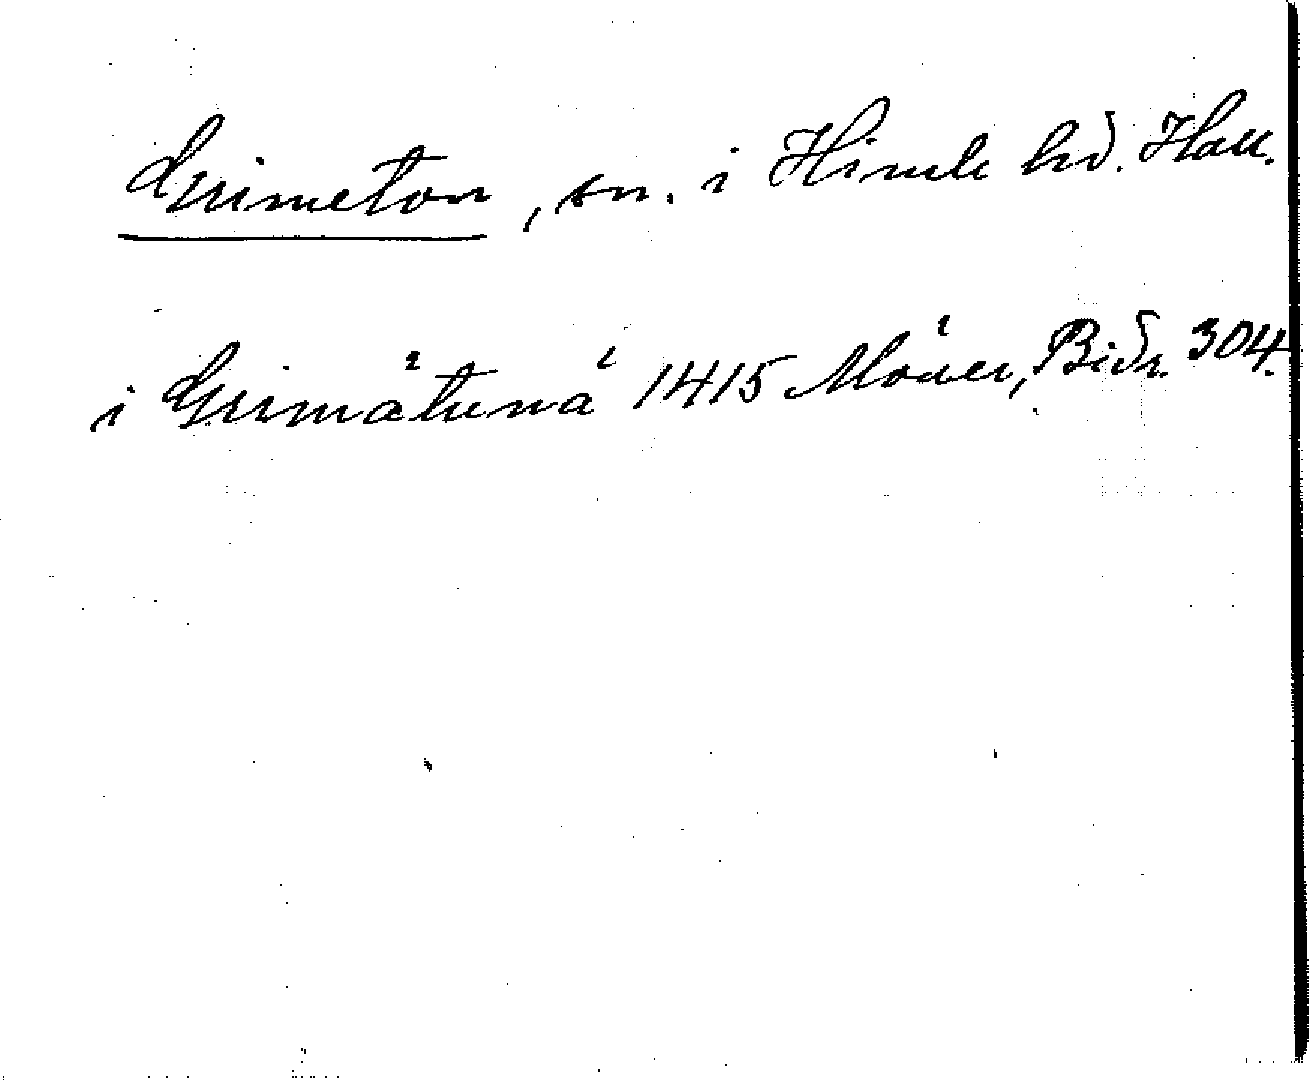 Grimeton, sn. i Himle hd. Hall.
i Grimätuna 1415 Möller, Bidr. 304.